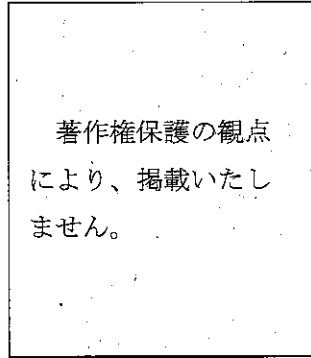 著作権保護の観点
により、掲載いたし
ません。